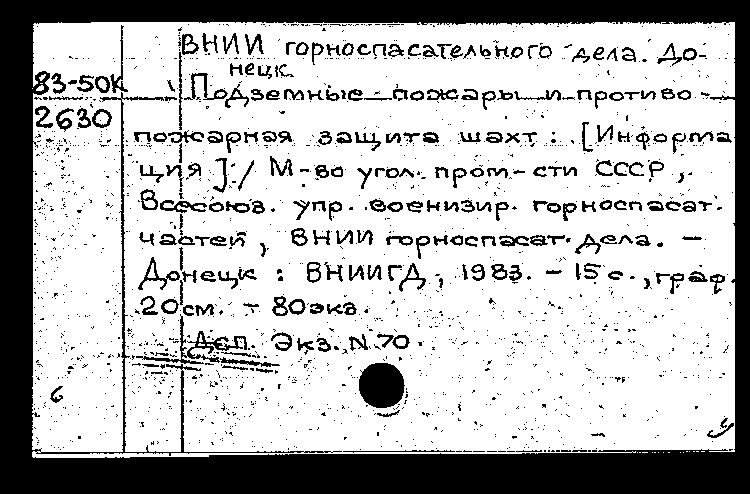 ВНИИ горноспасательного дела. До-
нецк.
83-50К Подземные пожары и противо-
2630
пожарная защита шахт: [Информа
ция]./ М-во угол. пром-сти СССР,
Всесоюз. упр. военизир. горноспасат.
частей, ВНИИ горноспасат. дела. -
Донецк: ВНИИГД, 1983. - 15 с., граф.
20 см. - 80 экз.
Деп. Экз. N 70.
6